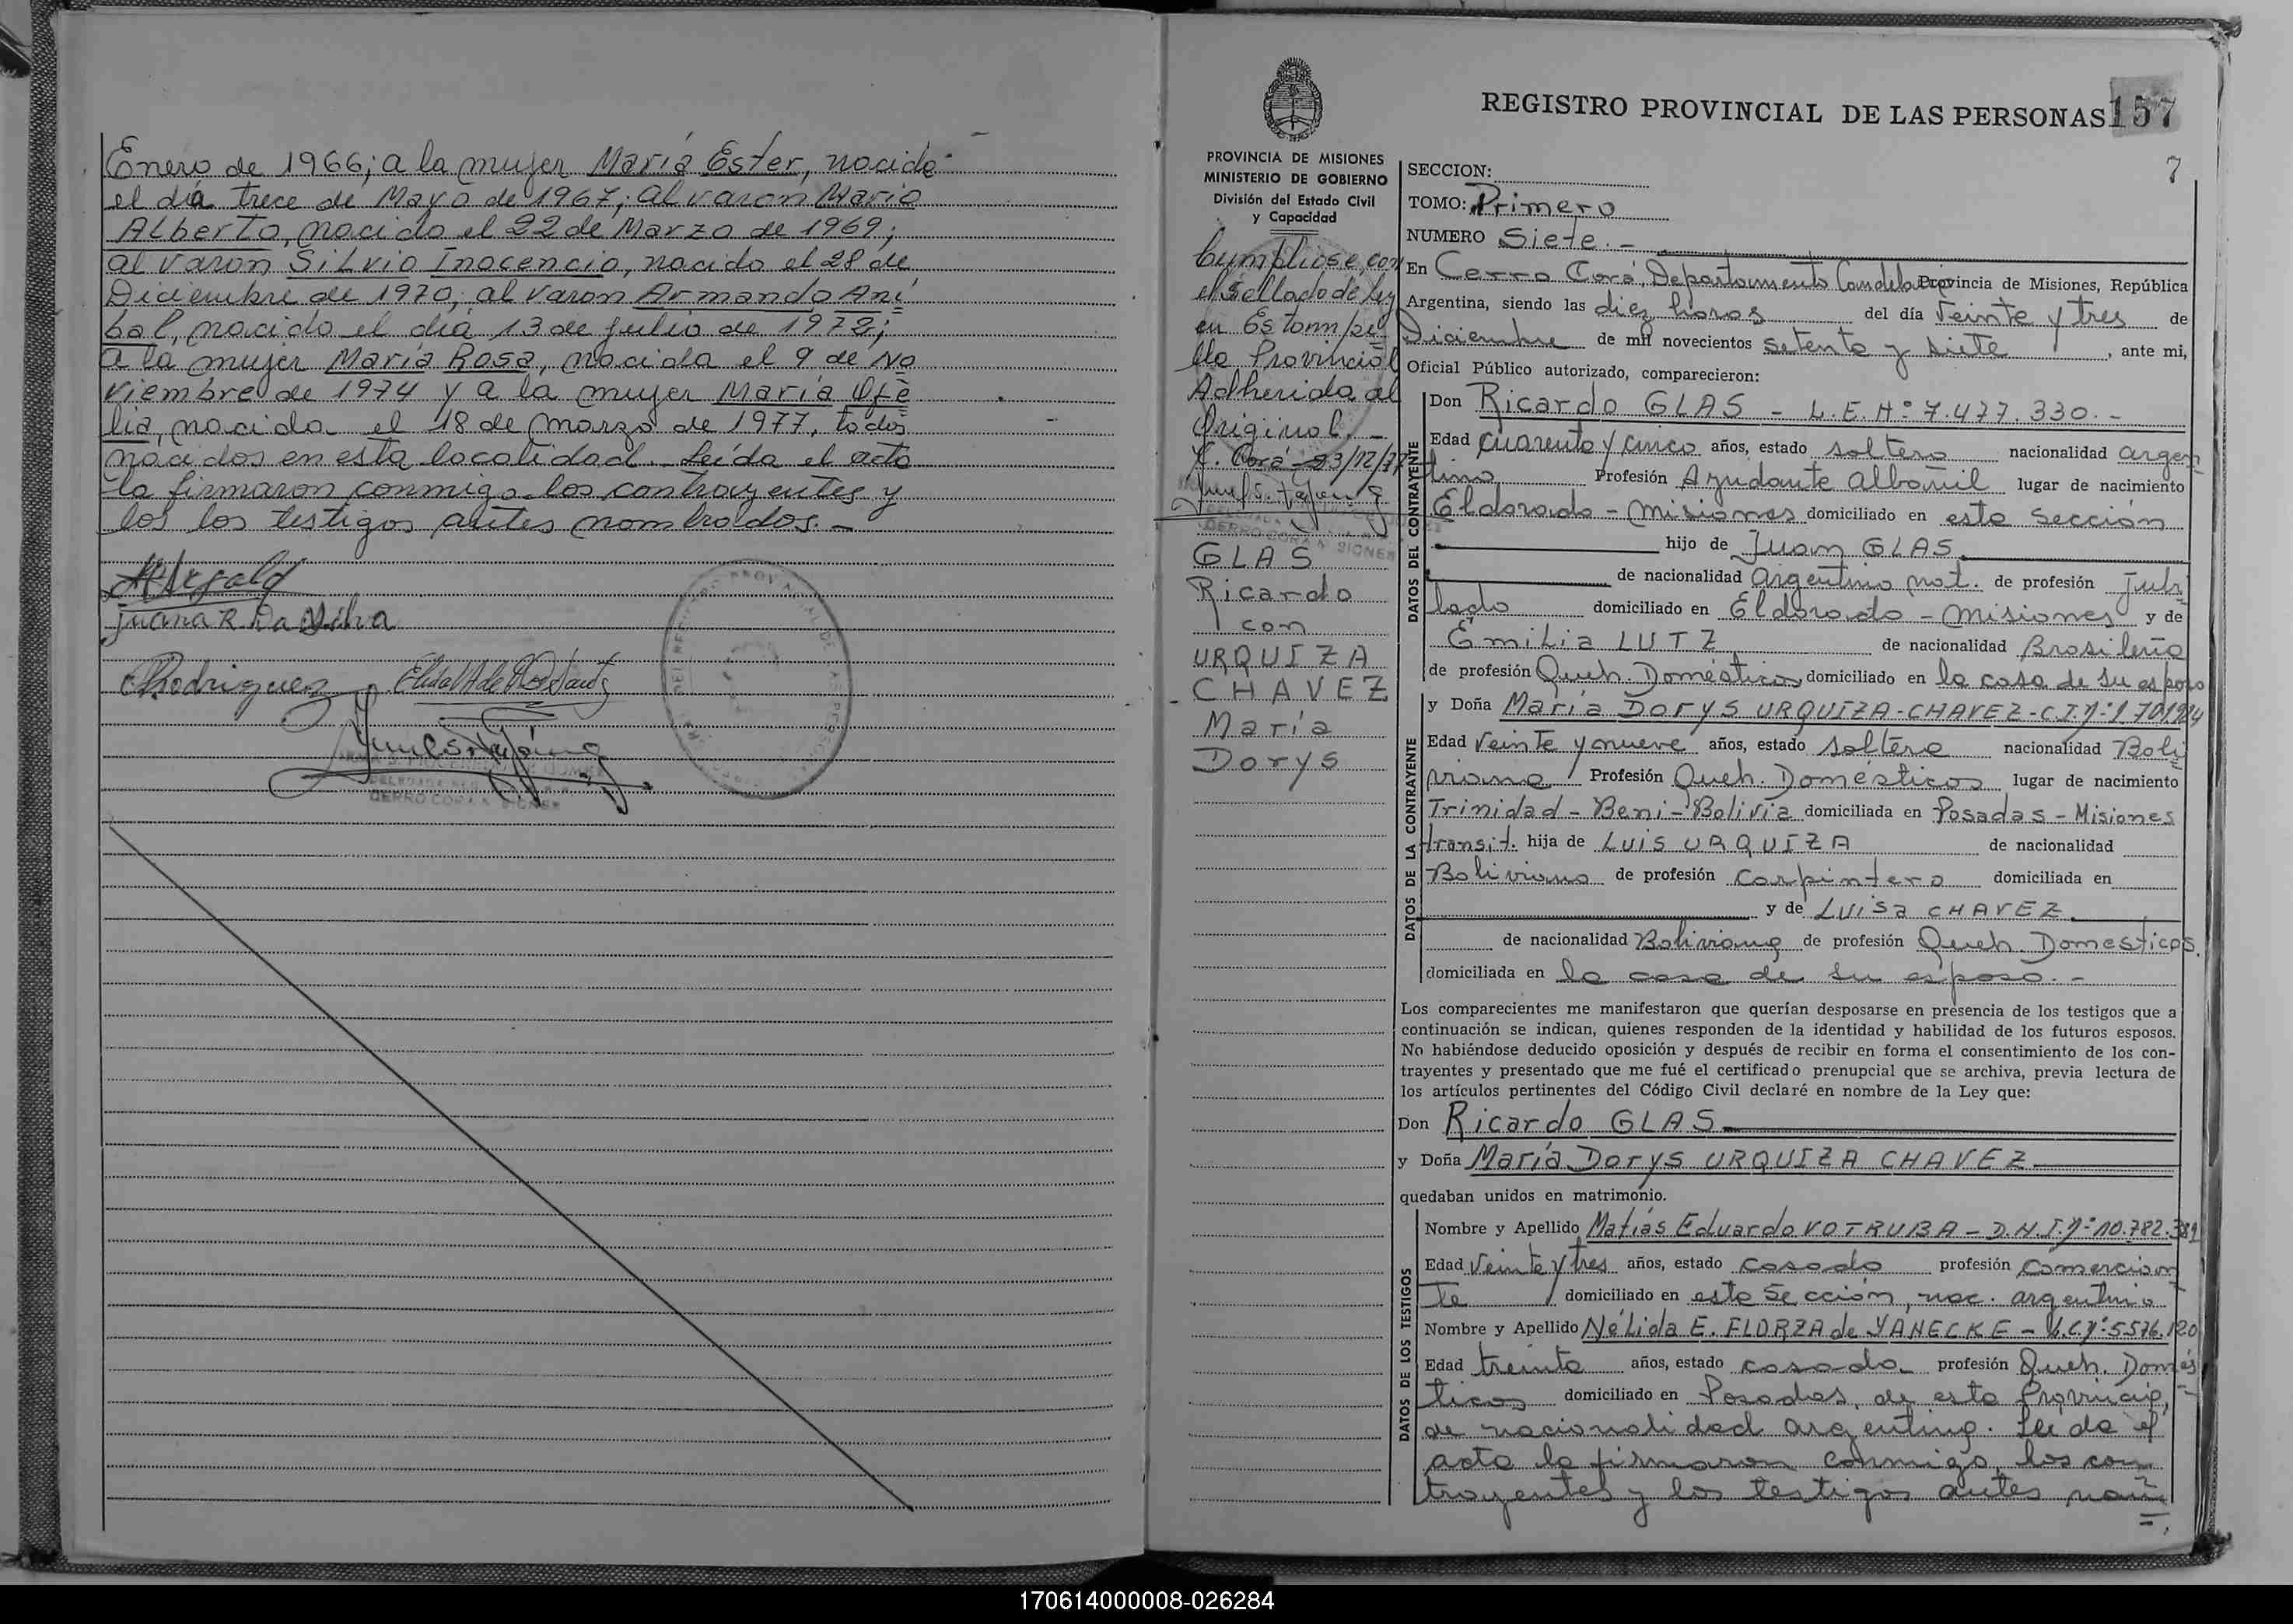 Enero de 1966; a la mujer María Ester, nacida
el día trece de Mayo de 1967; al varon Mario
Alberto, nacido el 22 de Marzo de 1969;
al varon Silvio Inocencio, nacido el 28 de
Diciembre de 1970; al varon Armando Aní
bal, nacido el día 13 de julio de 1972;
a la mujer María Rosa, nacida el 9 de No
viembre de 1974 y a la mujer María Ofe
lia, nacida el 18 de marzo de 1977, todos
nacidos en esta localidad. Leída el acta
la firmaron conmigo los contrayentes y
los los testigos antes nombrados.-
Juana R Da Silva
Rodriguez
CERRO CORA
REGISTRO PROVINCIAL DE LAS PERSONAS 157
7
PROVINCIA DE MISIONES
MINISTERIO DE GOBIERNO
División del Estado Civil
y Capacidad
Cumpliose con
el Sellado de ley
en Estampi
lla Provincial
Adherida al
Original.-
C. Corá 23/12/77
CERRO CORA MISIONES
GLAS
Ricardo
con
URQUIZA
CHAVEZ
María
Dorys
SECCION:
TOMO: Primero
NUMERO Siete.-
En Cerro Corá, Departamento Candelaria Provincia de Misiones, República
Argentina, siendo las diez horas del día Veinte y tres de
Diciembre de mil novecientos setenta y siete, ante mi,
Oficial Público autorizado, comparecieron:
DATOS DEL CONTRAYENTE
Don Ricardo GLAS - L.E.Nº 7.477.330.-
Edad cuarenta y cinco años, estado soltero nacionalidad argen
tino Profesión Ayudante albañil lugar de nacimiento
Eldorado - Misiones domiciliado en esta Sección
hijo de Juan GLAS
de nacionalidad argentino nat. de profesión Jubi
lado domiciliado en Eldorado - Misiones y de
Emilia LUTZ de nacionalidad Brasileña
de profesión Queh. Domésticos domiciliado en la casa de su esposo
DATOS DE LA CONTRAYENTE
y Doña María Dorys URQUIZA-CHAVEZ-C.I.Nº
Edad Veinte y nueve años, estado soltera nacionalidad Boli
viana Profesión Queh. Domésticos lugar de nacimiento
Trinidad - Beni - Bolivia domiciliada en Posadas - Misiones
transit. hija de Luis URQUIZA de nacionalidad
Boliviano de profesión Carpintero domiciliada en
y de Luisa CHAVEZ
de nacionalidad Boliviana de profesión Queh. Domesticos.
domiciliada en la casa de su esposo.-
Los comparecientes me manifestaron que querían desposarse en presencia de los testigos que a
continuación se indican, quienes responden de la identidad y habilidad de los futuros esposos.
No habiéndose deducido oposición y después de recibir en forma el consentimiento de los con-
trayentes y presentado que me fué el certificado prenupcial que se archiva, previa lectura de
los artículos pertinentes del Código Civil declaré en nombre de la Ley que:
Don Ricardo GLAS
y Doña María Dorys URQUIZA CHAVEZ
quedaban unidos en matrimonio.
DATOS DE LOS TESTIGOS
Nombre y Apellido Matías Eduardo VOTRUBA - D.N.I.Nº 10.782.381
Edad Veinte y tres años, estado casado profesión Comercian
te domiciliado en esta Sección, nac. argentino
Nombre y Apellido Nélida E. FLORZA de YANECKE - L.C.Nº 5.576.120
Edad treinta años, estado casada profesión Queh. Domés
ticos domiciliado en Posadas, de esta Provincia,
de nacionalidad argentina. Leída el
acta la firmaron conmigo los con
trayentes y los testigos antes nom
170614000008-026284